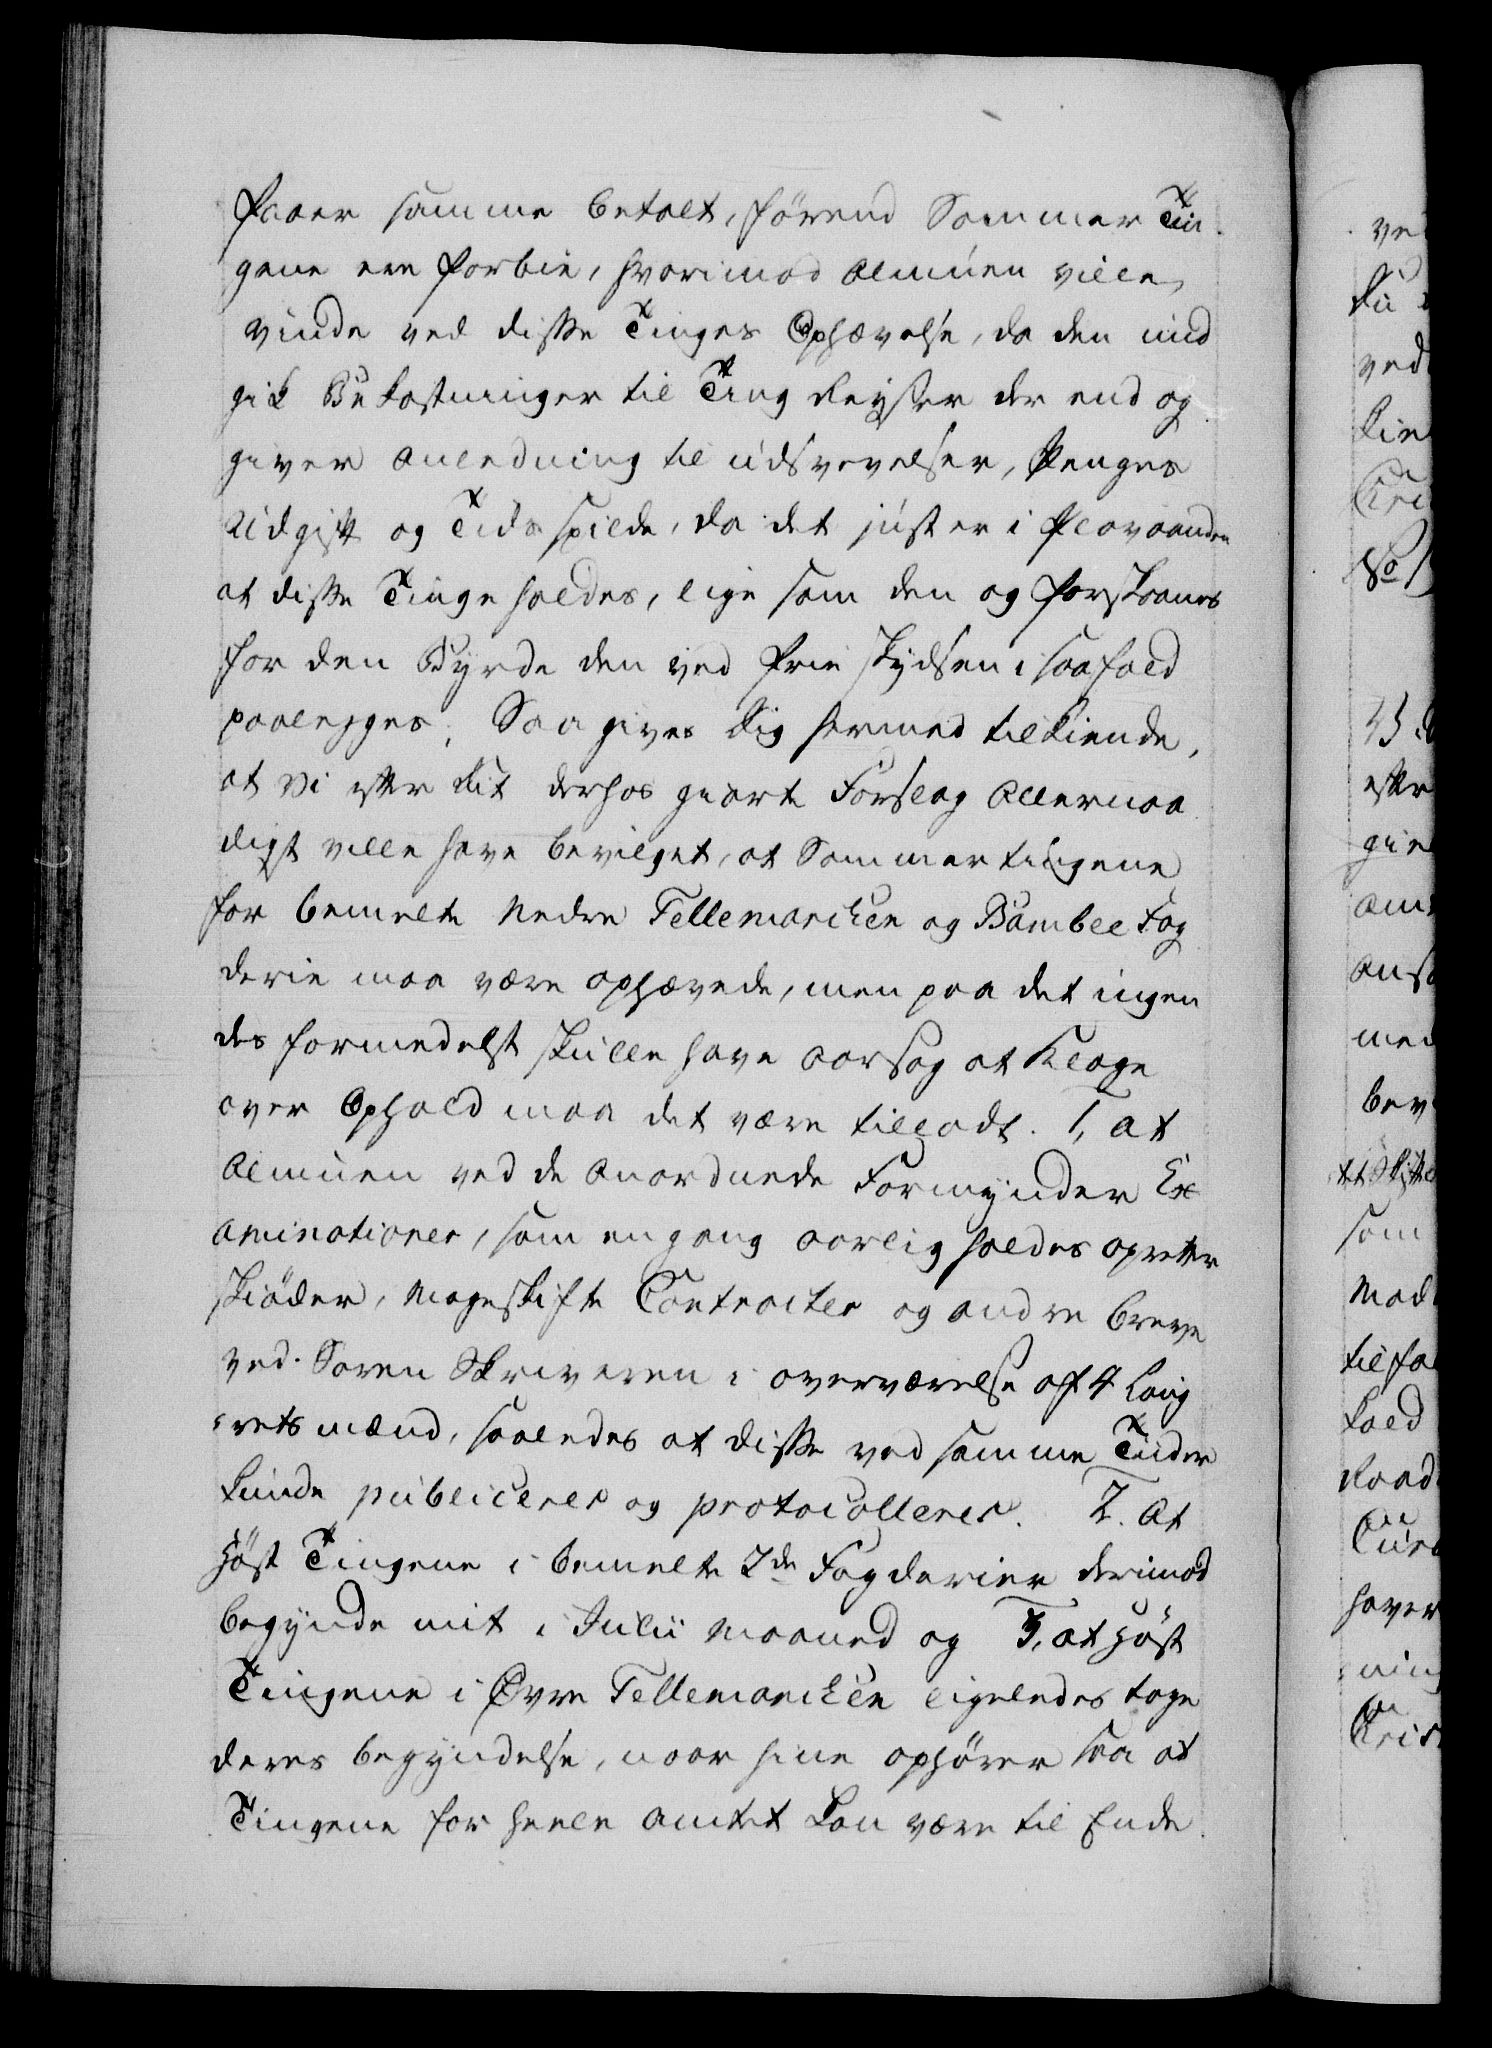 faaer samme betalt, førend Sommer Tin
gene ere forbie, hvorimod Almuen ville
vinde ved disse Tinges Ophævelse, da den und
gik Bekostninger til Ting Reyser der end og
giver Anledning til udsvevelser, Penges
Udgift og Tids spilde, da det just er i Plovaanden
at disse Tinge holdes, lige som den og forskaanes
for den Byrde den ved frie Skydsen i saafald
paalegges; Saa gives dig hermed tilkiende,
at Vi efter dit derhos giorte Forslag Allernaa
digst ville have bevilget, at Sommertingene
for bemelte Nedre Tellemarcken og Bamble Fog
derie maa være ophævede, men paa det ingen
des formedelst skulle have Aarsag at klage
over Ophold maa det være tilladt. 1, at
Almuen ved de Anordnede Formynder Ex
aminationer, som engang aarlig holdes opretter
Skiøder, Mageskifte Contracter og andre breve
ved Soren Skriveren i overværelse af 4 Laug
retsmænd, saaledes at disse ved samme Tiider
kunde publiceres og protocolleres. 2. At
Høst Tingene i bemelte 2de Fogderier derimod
begynde mit i Julii Maaned og 3, at Høst
Tingene i Øvre Tellemarcken ligeledes tage
deres begyndelse, naar hine ophører saa at
Tingene for heele Amtet kan være til Ende